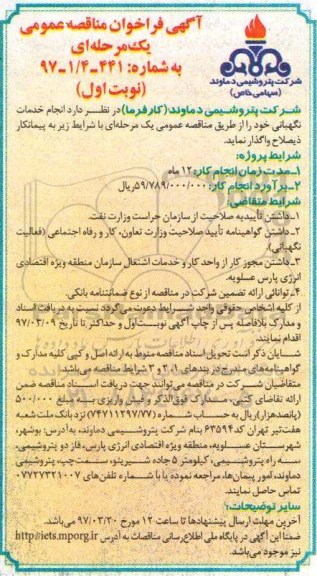 آگهی فراخوان مناقصه عمومی
یک مرحله‌ای
به شماره: ۴۴۱-۱/۴-۹۷
(نوبت اول)
شرکت پتروشیمی دماوند
(سهامی خاص)
شرکت پتروشیمی دماوند (کارفرما) در نظر دارد انجام خدمات
نگهبانی خود را از طریق مناقصه عمومی یک مرحله‌ای با شرایط زیر به پیمانکار
ذیصلاح واگذار نماید.
شرایط پروژه:
۱ـ مدت زمان انجام کار: ۱۲ ماه
۲ـ برآورد انجام کار: ۵۹/۷۸۹/۰۰۰/۰۰۰ ریال
شرایط متقاضی:
۱ـ داشتن تأییدیه صلاحیت از سازمان حراست وزارت نفت.
۲ـ داشتن گواهینامه تأیید صلاحیت وزارت تعاون، کار و رفاه اجتماعی (فعالیت
نگهبانی).
۳ـ داشتن مجوز کار از واحد کار و خدمات اشتغال سازمان منطقه ویژه اقتصادی
انرژی پارس عسلویه.
۴ـ توانائی ارائه تضمین شرکت در مناقصه از نوع ضمانتنامه بانکی.
از کلیه اشخاص حقوقی واجد شرایط دعوت می‌گردد نسبت به دریافت اسناد
و مدارک بلافاصله پس از چاپ آگهی نوبت اول و حداکثر تا تاریخ ۹۷/۰۳/۰۹
اقدام نمایند.
شایان ذکر است تحویل اسناد مناقصه منوط به ارائه اصل و کپی کلیه مدارک و
گواهینامه‌های مندرج در بندهای ۱، ۲ و ۳ شرایط مناقصه می‌باشد.
متقاضیان شرکت در مناقصه می‌توانند جهت دریافت اسناد مناقصه ضمن
ارائه تقاضای کتبی، مدارک فوق‌الذکر و فیش واریزی به مبلغ ۵۰۰/۰۰۰
(پانصد هزار) ریال به حساب شماره (۷۴۷۱۱۲۹۷/۷۷) نزد بانک ملت شعبه
هفت‌تیر تهران کد ۶۳۵۹۴ بنام شرکت پتروشیمی دماوند، به آدرس: بوشهر،
شهرستان عسلویه، منطقه ویژه اقتصادی انرژی پارس، فاز دو پتروشیمی،
سه راه پتروشیمی، کیلومتر ۵ جاده شیرینو، سمت چپ، پتروشیمی
دماوند، امور پیمان‌ها، مراجعه نموده یا با شماره تلفن‌های ۰۷۷۲۷۳۲۱۰۰۷
تماس حاصل نمایند.
سایر توضیحات:
آخرین مهلت ارسال پیشنهادها تا ساعت ۱۲ مورخ ۹۷/۰۳/۲۰ می‌باشد.
ضمنا این آگهی در پایگاه ملی اطلاع‌رسانی مناقصات به آدرس http://iets.mporg.ir
نیز موجود می‌باشد.